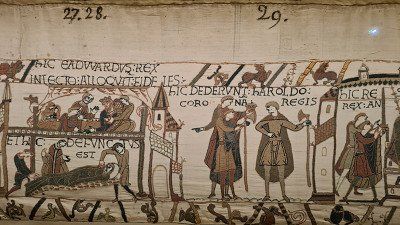 27. 28.
29.
HIC EADVVARDVS: REX
IN LECTO: ALLOQVIT: FIDELES:
ET HIC: DEFVNCTVS
EST
HIC DEDERVNT: HAROLDO:
CORONA: REGIS
HIC RE
REX: AN